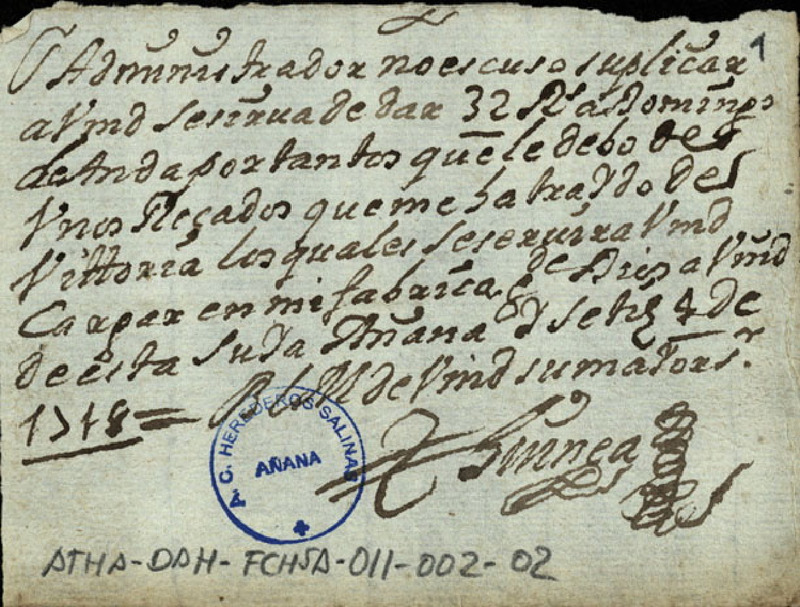 1
Sr Administrador no escuso suplicar
a Vmd se sirva de dar 32 Rs a Domingo
de Anda por tantos que le debo de
Vnos Recados que me ha traydo de
Vittoria los quales se servira Vmd
Cargar en mi fabrica de Dios a Vmd
de esta suya Añana y 4 de
1718 = B L M de Vmd su maior sr
A. C. HEREDEROS SALINAS
AÑANA
ATHA-DAH-FCHSA-011-002-02